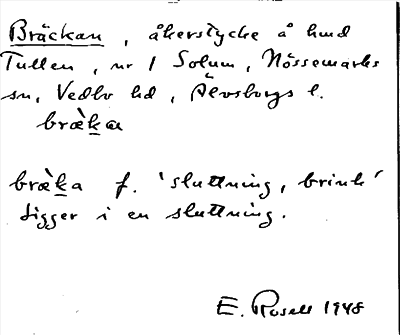 Bräckan, åkerstycke å hmd
Tullen, nr 1 Solum, Nössemarks
sn, Vedbo hd, Älvsborgs l.
bræ̀ka
bræ̀ka f. 'sluttning, brink'
Ligger i en sluttning.
E. Rosell 1948